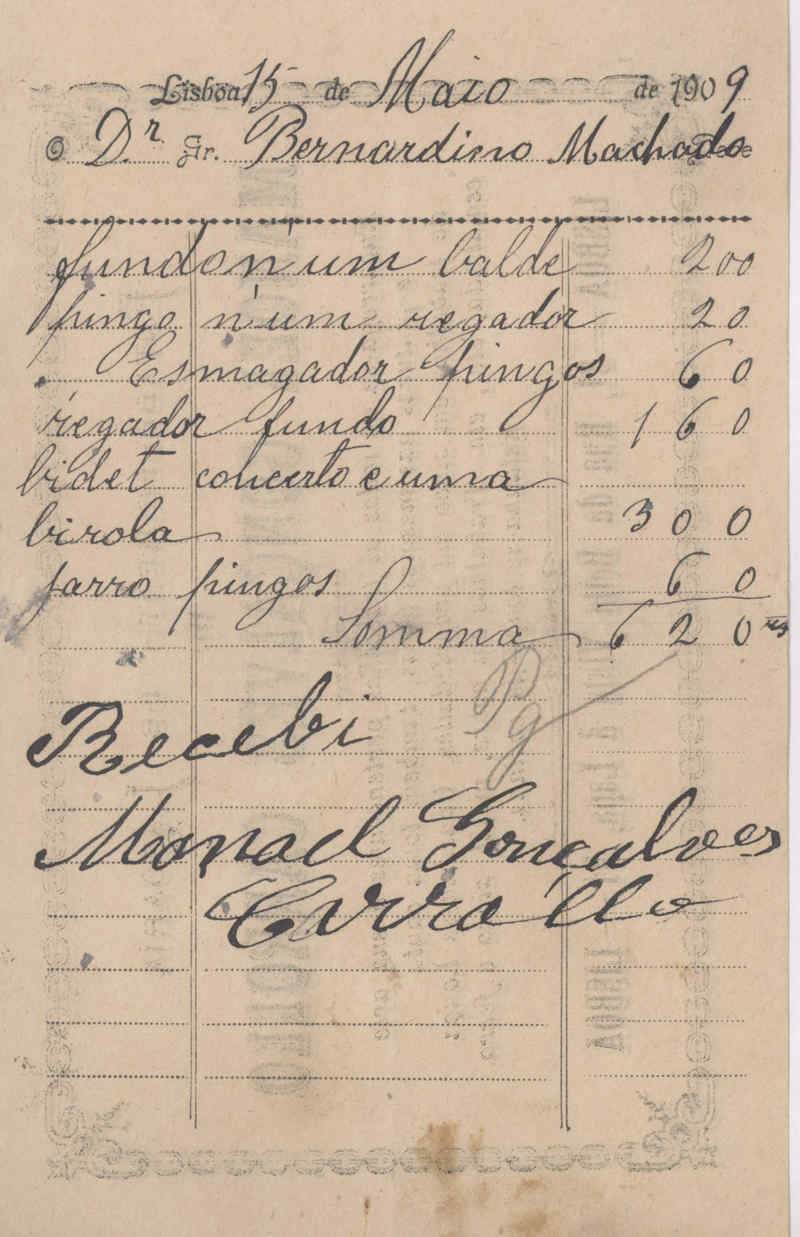 Lisboa 15 de Maio de 1909
O Dr. Sr. Bernardino Machado
fundo n'um balde 200
pingo n'um regador 20
Esmagador pingos 60
regador fundo 160
bidet concerto e uma
birola 300
jarro pingos 60
Somma 620 rs
Pg
Recebi
Manoel Gonçalves